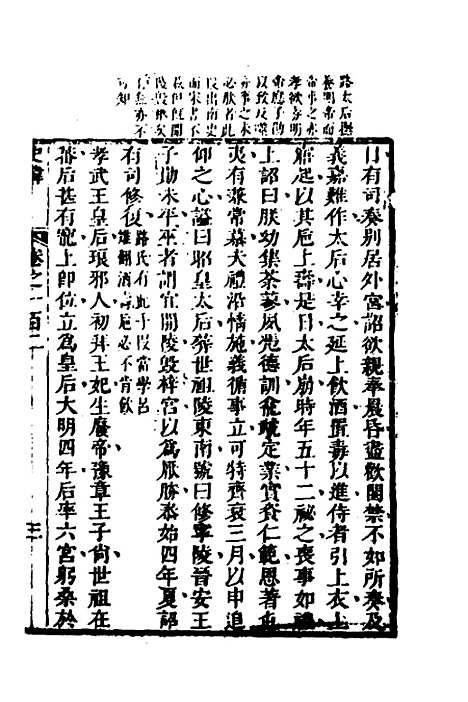 路太后撫
養明帝而
帝事之亦
孝欲害明
帝應子勛
以致反
事之未
必然者此
段出南史
而宋書不
載但開
陵毀
亦不
可知
日有司奏別居外宮詔欲親奉晨昏盡歡闈禁不如所奏及
義嘉難作太后心幸之延上飲酒置毒以進侍者引上衣上
寤起以其卮上壽是日太后崩時年五十二祕之喪事如禮
上詔曰朕幼集荼蓼夙憑德訓龕虣定業實資仁範恩著屯
夷有兼常慕夫禮沿情施義循事立可特齊衰三月以申追
仰之心謚曰昭皇太后葬世祖陵東南號曰修寧陵晉安王
子勛未平巫者謂宜開陵毀梓宮以為厭勝泰始四年夏詔
有司修復路氏有此子復當學呂雉鴆酒壽卮必不肯飲
孝武王皇后琅邪人初拜王妃生廢帝豫章王子尚世祖在
蕃后甚有寵上即位立為皇后大明四年后率六宮躬桑於
史緯 卷之一百二